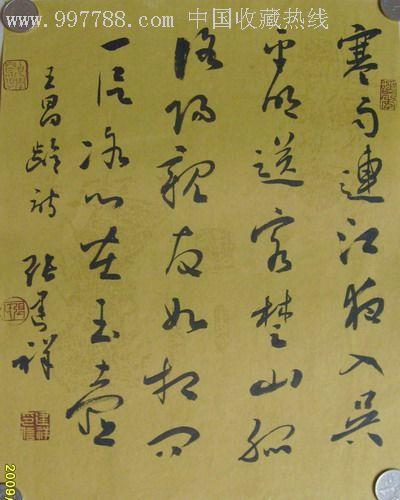 www.997788.com 中国收藏热线
寒雨连江夜入吴
平明送客楚山孤
洛阳亲友如相问
一片冰心在玉壶
王昌龄诗 张建祥
2009/